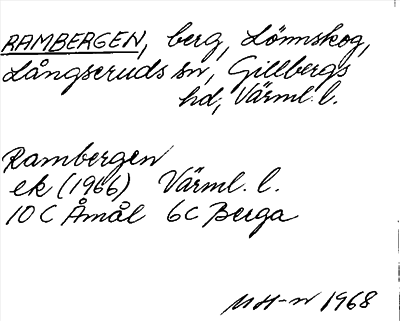 RAMBERGEN, berg, Lönnskog,
Långseruds sn, Gillbergs
hd, Värml. l.
Rambergen
ek (1966) Värml. l.
10 C Åmål 6 C Berga
1968